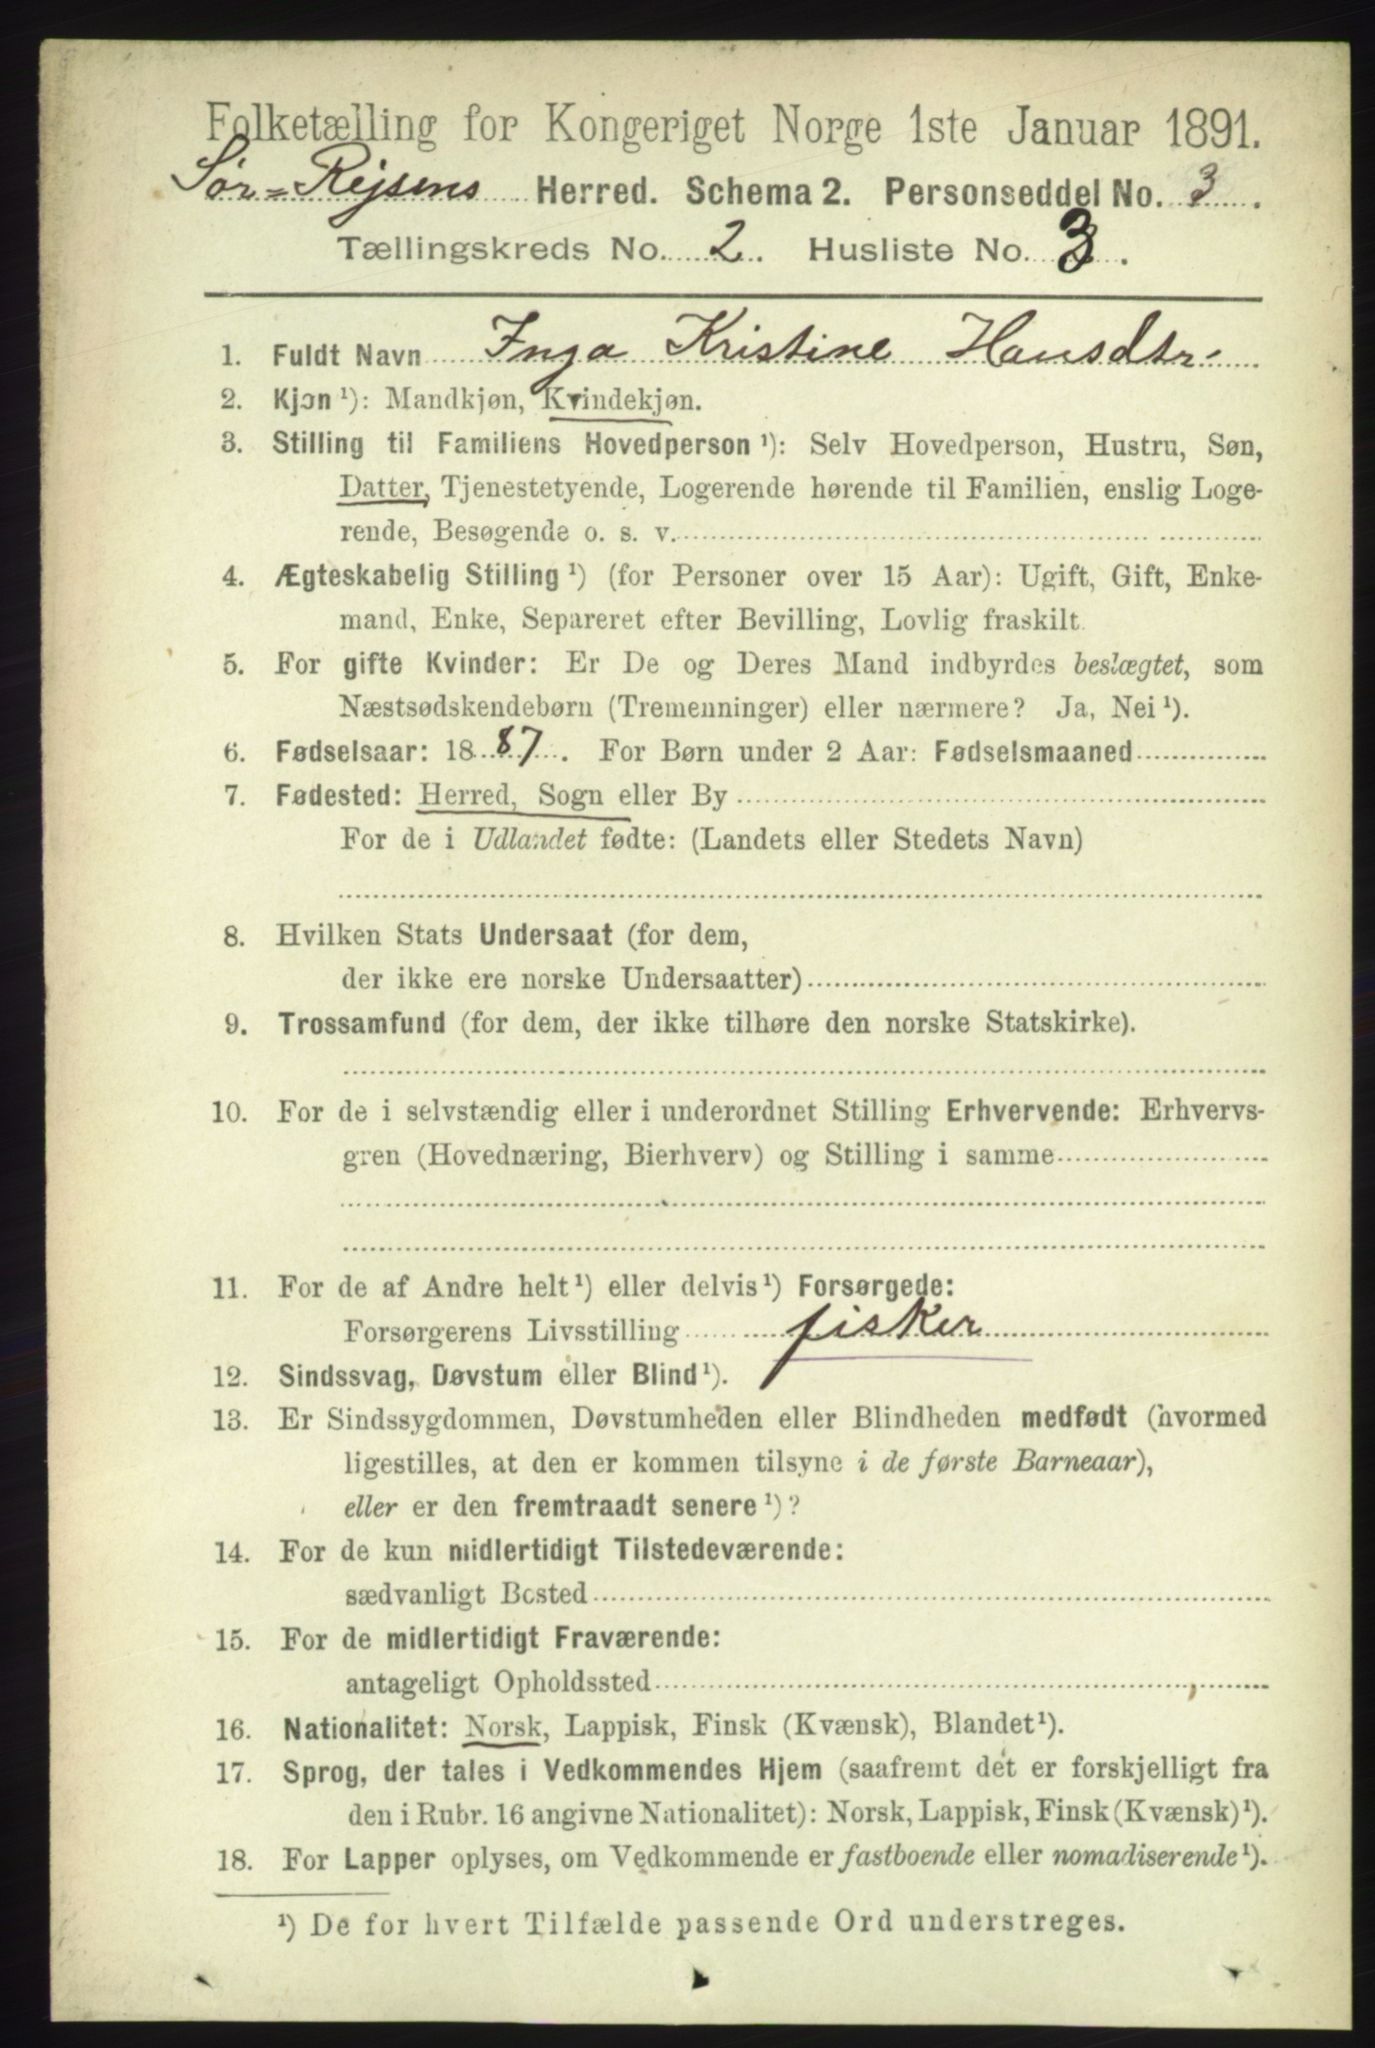 Folketælling for Kongeriget Norge 1ste Januar 1891.
Sør-Rejsens Herred. Schema 2. Personseddel No. 3.
Tællingskreds No. 2. Husliste No. 3.
1. Fuldt Navn Inga Kristine Hansdtr.
2. Kjøn ¹): Mandkjøn, Kvindekjøn.
3. Stilling til Familiens Hovedperson ¹): Selv Hovedperson, Hustru, Søn,
Datter, Tjenestetyende, Logerende hørende til Familien, enslig Loge-
rende, Besøgende o. s. v.
4. Ægteskabelig Stilling ¹) (for Personer over 15 Aar): Ugift, Gift, Enke-
mand, Enke, Separeret efter Bevilling, Lovlig fraskilt.
5. For gifte Kvinder: Er De og Deres Mand indbyrdes beslægtet, som
Næstsødskendebørn (Tremenninger) eller nærmere? Ja, Nei ¹).
6. Fødselsaar: 1887. For Børn under 2 Aar: Fødselsmaaned
7. Fødested: Herred, Sogn eller By
For de i Udlandet fødte: (Landets eller Stedets Navn)
8. Hvilken Stats Undersaat (for dem,
der ikke ere norske Undersaatter)
9. Trossamfund (for dem, der ikke tilhøre den norske Statskirke).
10. For de i selvstændig eller i underordnet Stilling Erhvervende: Erhvervs-
gren (Hovednæring, Bierhverv) og Stilling i samme
11. For de af Andre helt ¹) eller delvis ¹) Forsørgede:
Forsørgerens Livsstilling fisker
12. Sindssvag, Døvstum eller Blind ¹).
13. Er Sindssygdommen, Døvstumheden eller Blindheden medfødt (hvormed
ligestilles, at den er kommen tilsyne i de første Barneaar),
eller er den fremtraadt senere ¹)?
14. For de kun midlertidigt Tilstedeværende:
sædvanligt Bosted
15. For de midlertidigt Fraværende:
antageligt Opholdssted
16. Nationalitet: Norsk, Lappisk, Finsk (Kvænsk), Blandet ¹).
17. Sprog, der tales i Vedkommendes Hjem (saafremt det er forskjelligt fra
den i Rubr. 16 angivne Nationalitet): Norsk, Lappisk, Finsk (Kvænsk) ¹).
18. For Lapper oplyses, om Vedkommende er fastboende eller nomadiserende ¹).
¹) De for hvert Tilfælde passende Ord understreges.